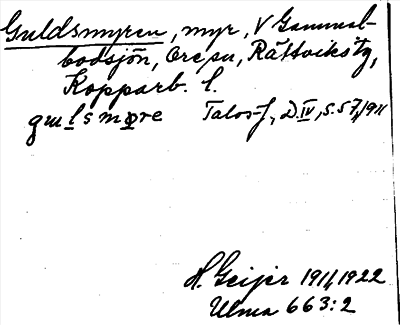 Guldsmyren, myr, V Gammel-
bodsjön, Ore sn, Rättviks tg,
Kopparb. l.
gulsmyre Talosf, D.IV, s.57, 1911
H. Geijer 1911, 1922
Ulma 663:2